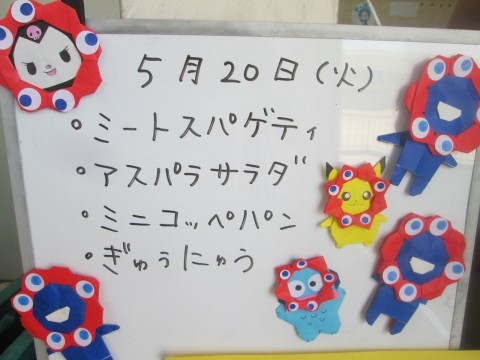 5月20日(火)
・ミートスパゲティ
・アスパラサラダ
・ミニコッペパン
・ぎゅうにゅう